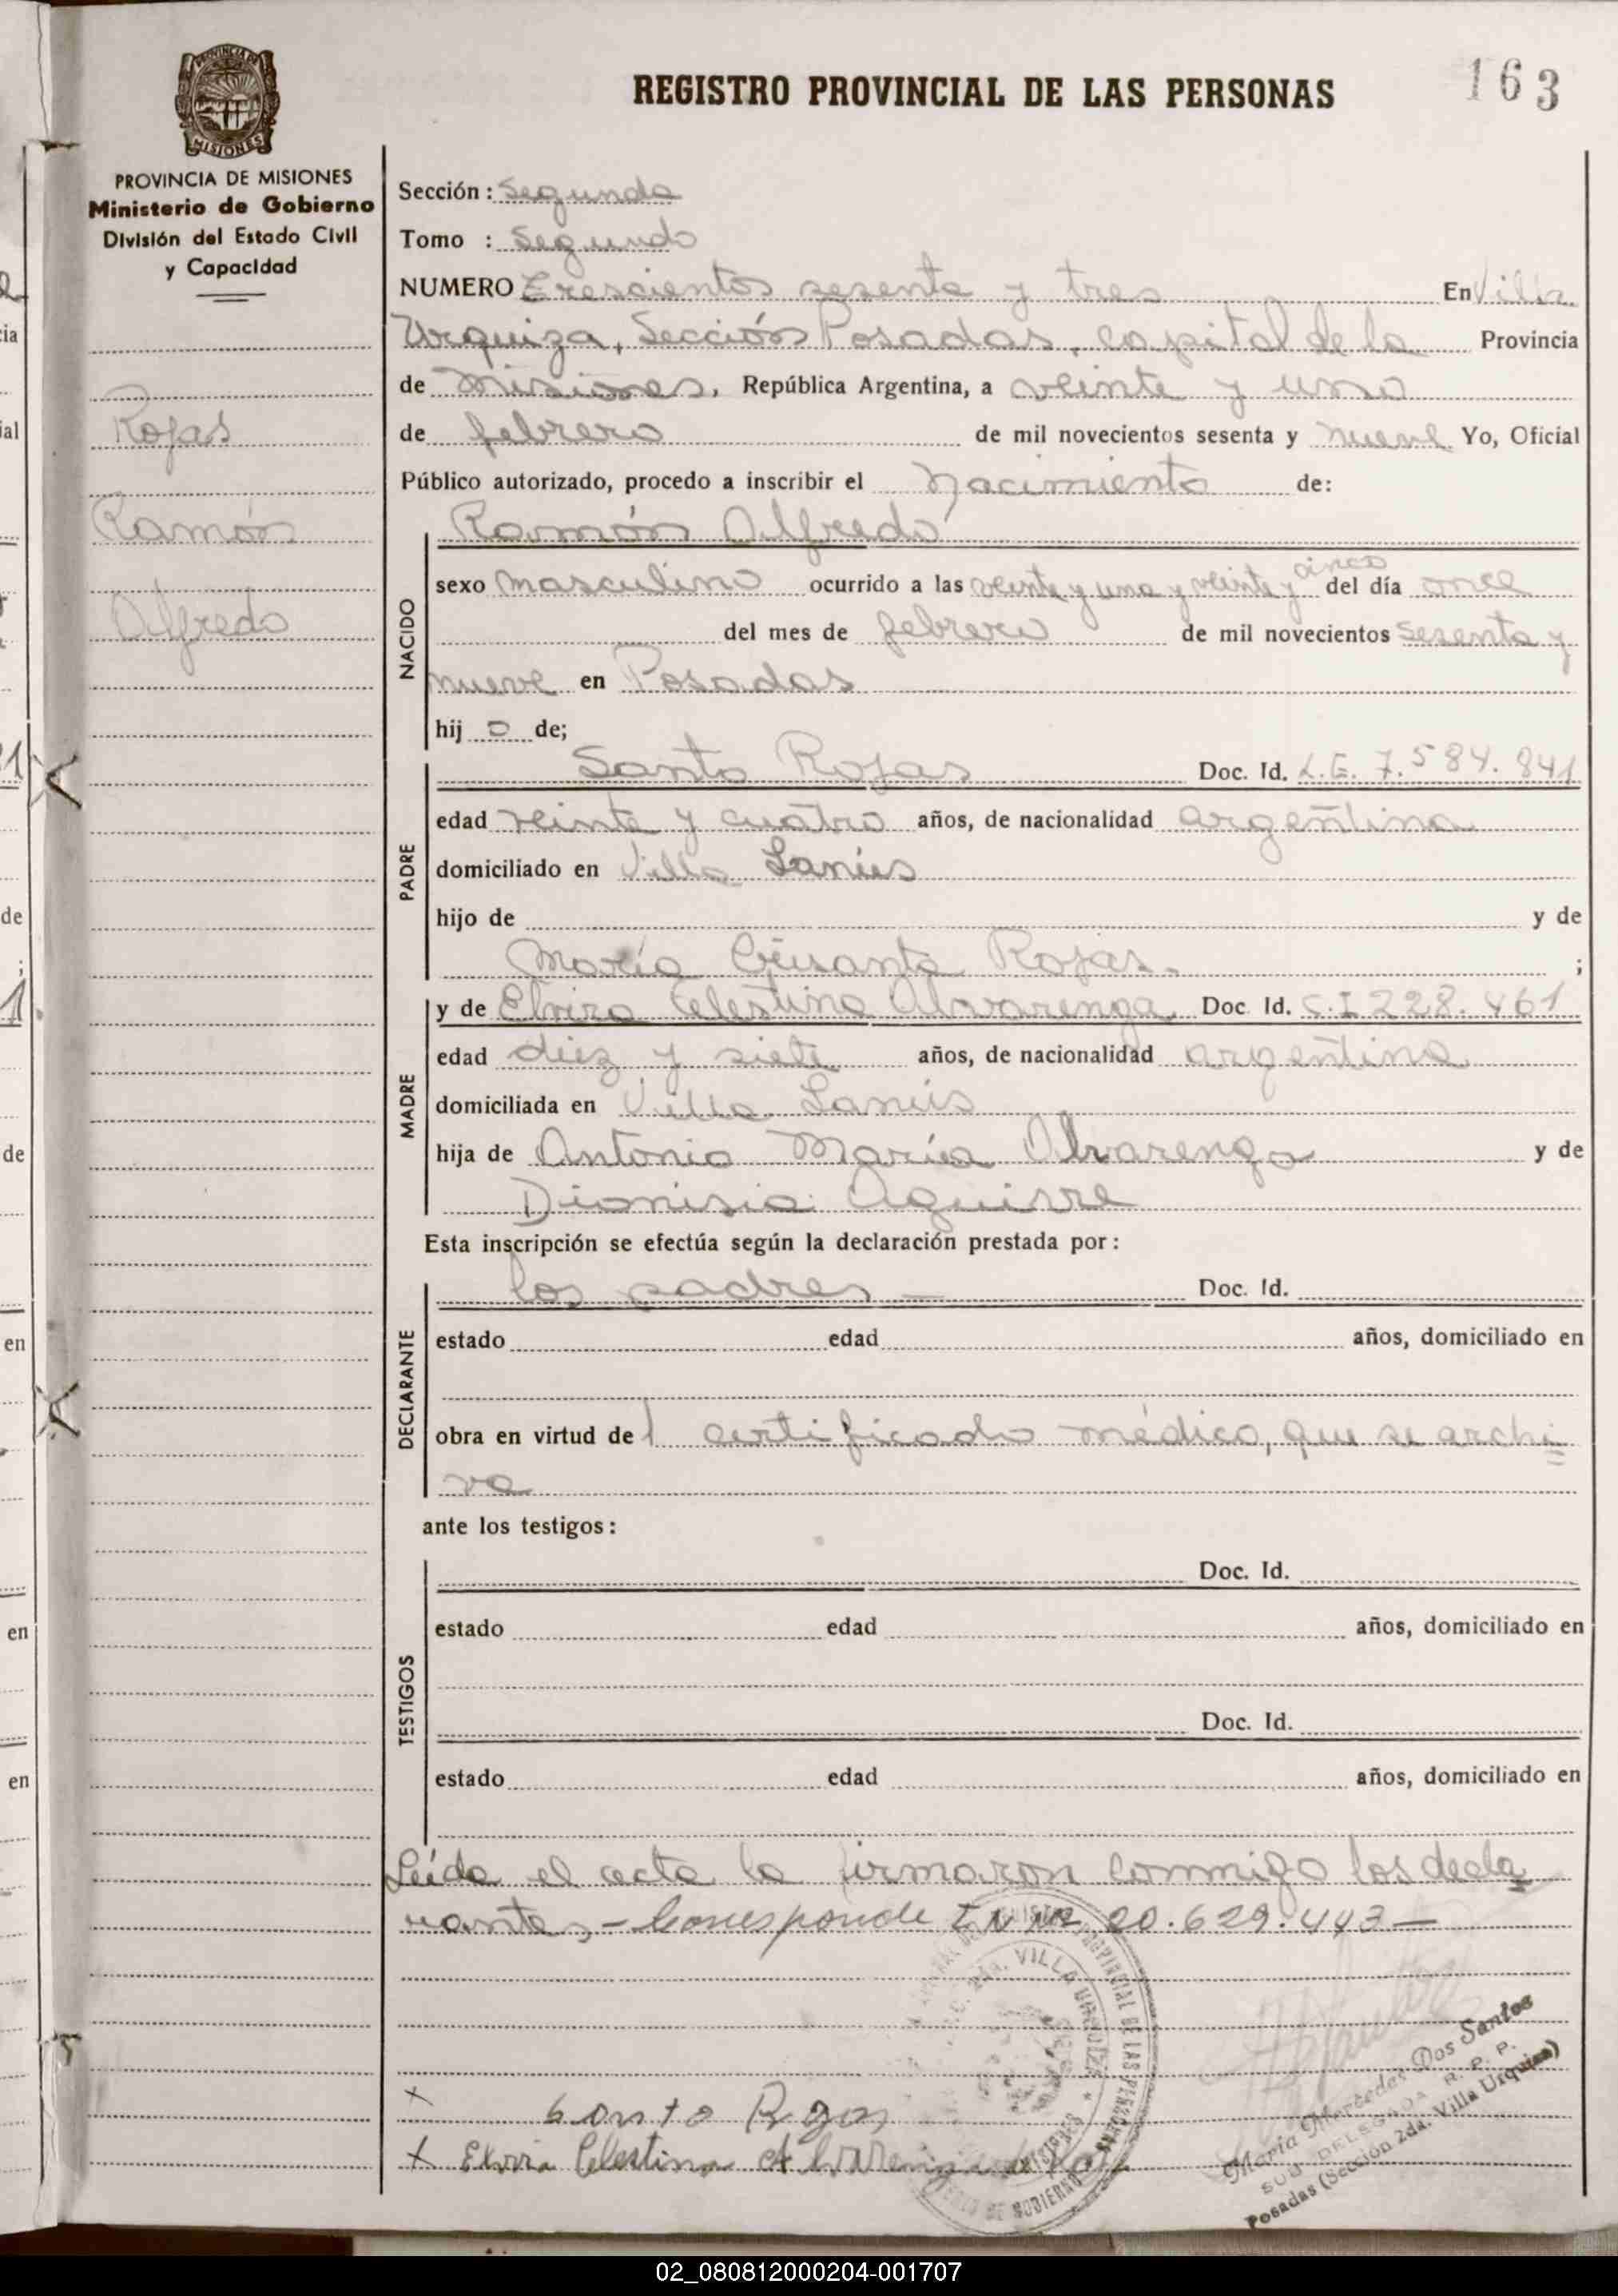 REGISTRO PROVINCIAL DE LAS PERSONAS
163
PROVINCIA DE MISIONES
Ministerio de Gobierno
División del Estado Civil
y Capacidad
Rojas
Ramón
Alfredo
Sección: Segunda
Tomo : Segundo
NUMERO Trescientos sesenta y tres En Villa
Urquiza, Sección Posadas, capital de la Provincia
de Misiones, República Argentina, a veinte y uno
de febrero de mil novecientos sesenta y nueve Yo, Oficial
Público autorizado, procedo a inscribir el Nacimiento de:
NACIDO
Ramón Alfredo
sexo masculino ocurrido a las veinte y una y veinte y cinco del día once
del mes de febrero de mil novecientos sesenta y
nueve en Posadas
hij o de;
PADRE
Santo Rojas Doc. Id. L.E. 7.584.841
edad veinte y cuatro años, de nacionalidad argentina
domiciliado en Villa Lanús
hijo de y de
María Crisanta Rojas. ;
MADRE
y de Elvira Celestina Alvarenga Doc. Id. C.I 228.461
edad diez y siete años, de nacionalidad argentina
domiciliada en Villa Lanús
hija de Antonio María Alvarenga y de
Dionisia Aguirre
Esta inscripción se efectúa según la declaración prestada por:
DECLARANTE
los padres — Doc. Id.
estado edad años, domiciliado en
obra en virtud del certificado médico, que se archi
va
ante los testigos:
TESTIGOS
Doc. Id.
estado edad años, domiciliado en
Doc. Id.
estado edad años, domiciliado en
Leída el acta la firmaron conmigo los decla
rantes – Corresponde I N Nº 20.629.443 —
VILLA URQUIZA
PROVINCIAL DE LAS PERSONAS
DE GOBIERNO
María Mercedes Dos Santos
SUB DELEGADA R. P. P.
Posadas (Sección 2da. Villa Urquiza)
x Santo Rojas
x Elvira Celestina Alvarenga de
02_080812000204-001707